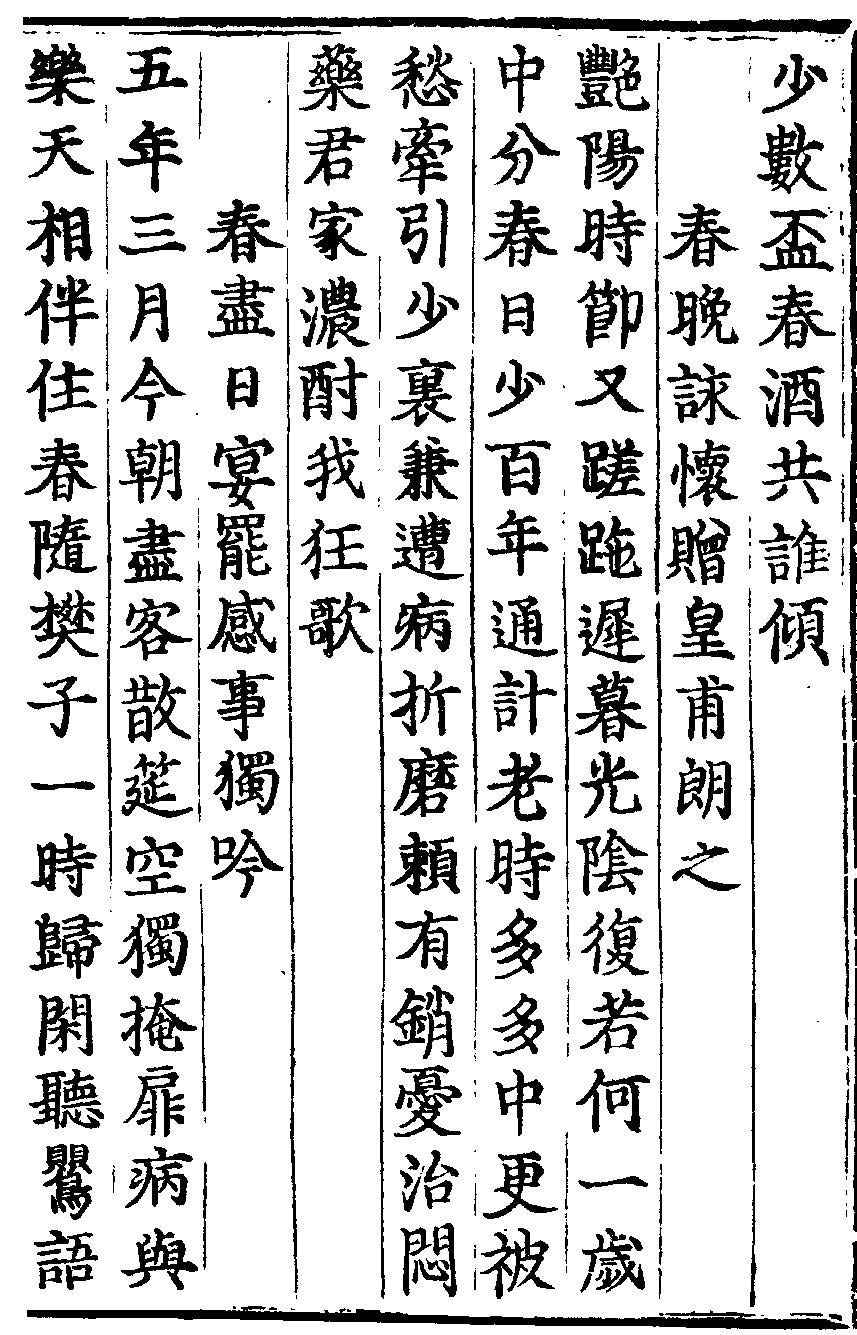 少數盃春酒共誰傾
春晚詠懷贈皇甫朗之
豔陽時節又蹉跎遲暮光陰復若何一歲
中分春日少百年通計老時多多中更被
愁牽引少裏兼遭病折磨頼有銷憂治悶
藥君家濃酎我狂歌
春盡日宴罷感事獨吟
五年三月今朝盡客散筵空獨掩扉病與
樂天相伴住春隨樊子一時歸閑聽鸎語